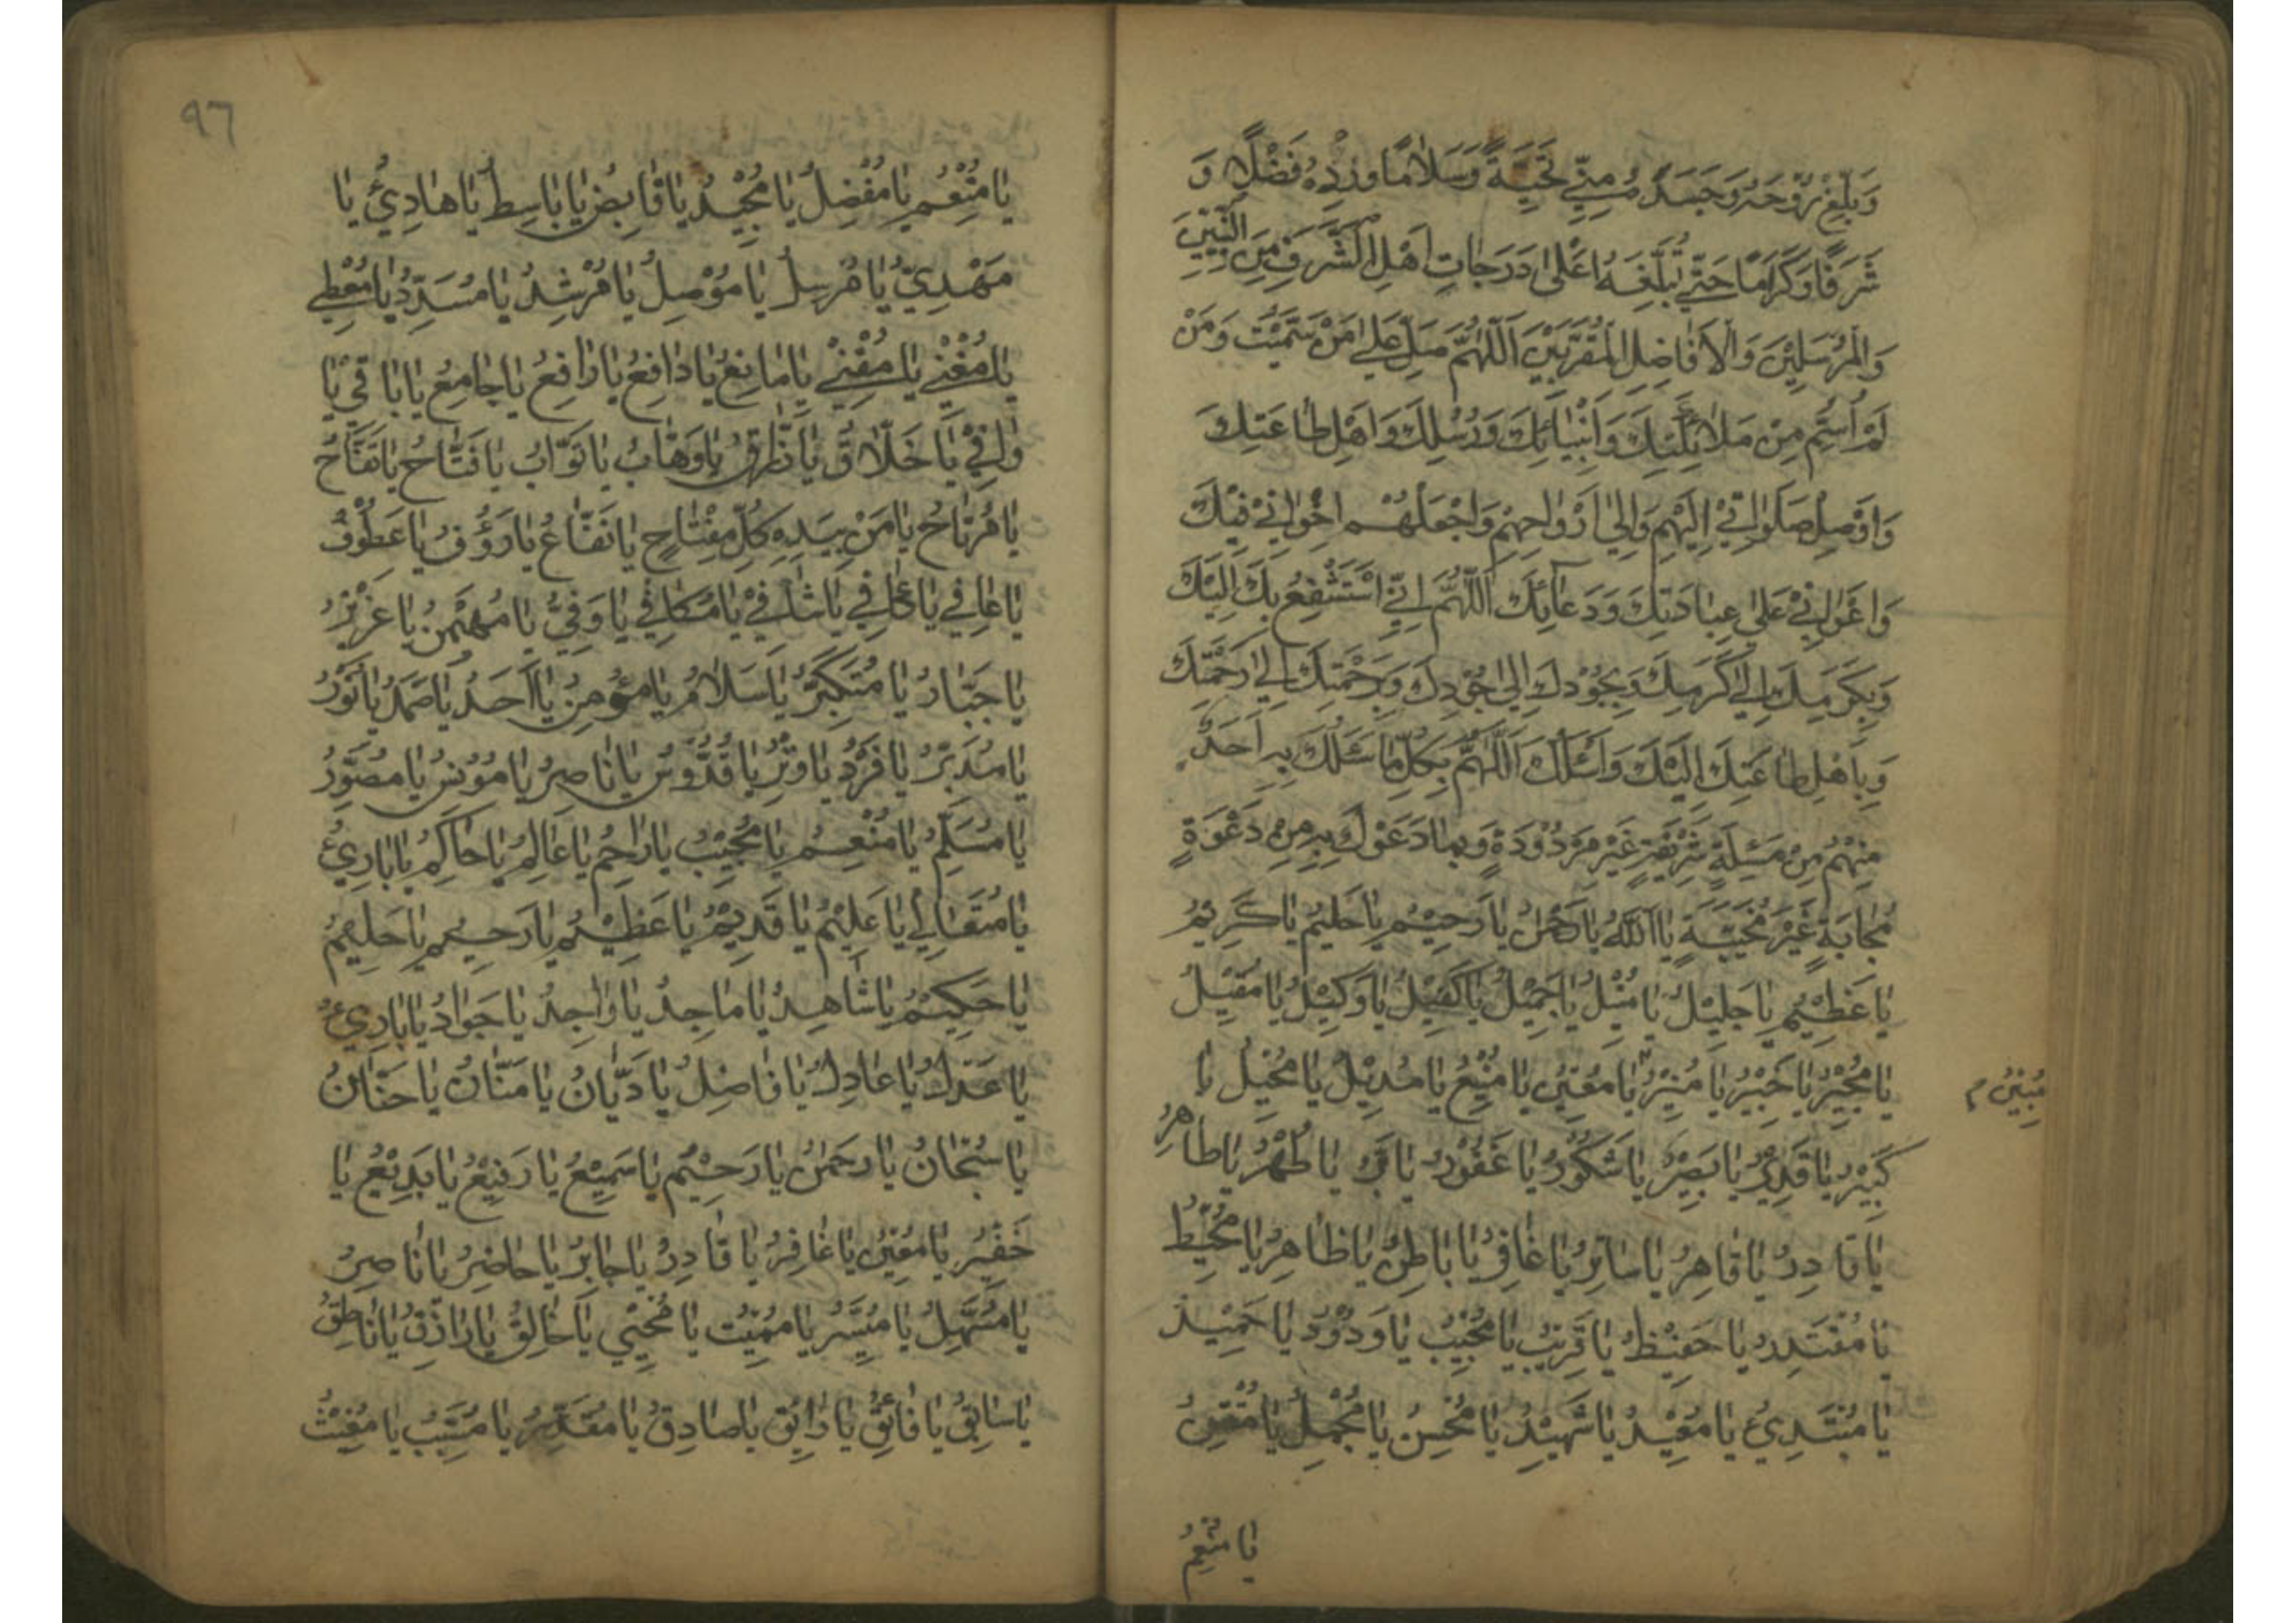 وَبَلِّغْ رُوْحَهُ وَجَسَدَهُ مِنِّي تَحِيَّةً وَسَلَامًا وَزِدْهُ فَضْلًا وَ
شَرَفًا وَكَرَامًا حَتّٰي تُبَلِّغَهُ اَعْلٰي دَرَجَاتِ اَهْلِ الشَّرَفِ مِنَ النَّبِيّيْنَ
وَالْمُرْسَلِيْنَ وَالْاَفَاضِلِ الْمُقَرَّبِيْنَ اَللّٰهُمَّ صَلِّ عَلٰي مَنْ سَمَّيْتُ وَمَنْ
لَمْ اُسَمِّ مِنْ مَلَائِكَتِكَ وَاَنْبِيَائِكَ وَرُسُلِكَ وَاَهْلِ طَاعَتِكَ
وَاَوْصِلْ صَلَوَاتِيْ اِلَيْهِمْ وَاِلٰي اَرْوَاحِهِمْ وَاجْعَلْهُمْ اِخْوَانِيْ فِيْكَ
وَاَعْوَانِيْ عَلٰي عِبَادَتِكَ وَدَعَائِكَ اَللّٰهُمَّ اِنِّيْ اَسْتَشْفِعُ بِكَ اِلَيْكَ
وَبِكَرَمِكَ اِلٰي كَرَمِكَ وَبِجُوْدِكَ اِلٰي جُوْدِكَ وَبِرَحْمَتِكَ اِلٰي رَحْمَتِكَ
وَبِاَهْلِ طَاعَتِكَ اِلَيْكَ وَاَسْئَلُكَ اَللّٰهُمَّ بِكُلِّ مَا سَئَلَكَ بِهِ اَحَدٌ
مِنْهُمْ مِنْ مَسْئَلَةٍ شَرِيْفَةٍ غَيْرِ مَرْدُوْدَةٍ وَبِمَا دَعَوْكَ بِهِ مِنْ دَعْوَةٍ
مُجَابَةٍ غَيْرِ مُخَيَّبَةٍ يَا اَللّٰهُ يَا رَحْمٰنُ يَا رَحِيْمُ يَا حَلِيْمُ يَا كَرِيْمُ
يَا عَظِيْمُ يَا جَلِيْلُ يَا مُنِيْلُ يَا جَمِيْلُ يَا كَفِيْلُ يَا وَكِيْلُ يَا مُقِيْلُ
يَا مُجِيْرُ يَا خَبِيْرُ يَا مُنِيْرُ يَا مُعِيْنُ يَا مَنِيْعُ يَا مُدِيْلُ يَا مُحِيْلُ يَا
مُبِيْنُ م
كَبِيْرُ يَا قَدِيْرُ يَا بَصِيْرُ يَا شَكُوْرُ يَا غَفُوْرُ يَا بَرُّ يَا طُهْرُ يَا طَاهِرُ
يَا قَادِرُ يَا قَاهِرُ يَا سَاتِرُ يَا غَافِرُ يَا بَاطِنُ يَا ظَاهِرُ يَا مُحِيْطُ
يَا مُقْتَدِرُ يَا حَفِيْظُ يَا قَرِيْبُ يَا مُجِيْبُ يَا وَدُوْدُ يَا حَمِيْدُ
يَا مُبْتَدِئُ يَا مُعِيْدُ يَا شَهِيْدُ يَا مُحْسِنُ يَا مُجْمِلُ
يَا مُنْعِمُ
٩٦
يَا مُنْعِمُ يَا مُفْضِلُ يَا مُجِيْدُ يَا قَابِضُ يَا بَاسِطُ يَا هَادِيْ يَا
مَهْدِيُّ يَا مُرْسِلُ يَا مُوْصِلُ يَا مُرْشِدُ يَا مُسَدِّدُ يَا مُعْطِي
يَا مُغْنِيْ يَا مُقْنِيْ يَا مَانِعُ يَا دَافِعُ يَا رَافِعُ يَا جَامِعُ يَا بَاقِيْ يَا
وَافِيْ يَا خَلَّاقُ يَا رَزَّاقُ يَا وَهَّابُ يَا تَوَّابُ يَا فَتَّاحُ يَا نَفَّاحُ
يَا مُرْتَاحُ يَا مَنْ بِيَدِهِ كُلُّ مِفْتَاحٍ يَا نَفَّاعُ يَا رَؤُفُ يَا عَطُوْفُ
يَا عَافِي يَا كَافِي يَا شَافِيْ يَا مُكَافِي يَا وَفِيُّ يَا مُهَيْمِنُ يَا عَزِيْزُ
يَا جَبَّارُ يَا مُتَكَبِّرُ يَا سَلَامُ يَا مُؤْمِنُ يَا اَحَدُ يَا صَمَدُ يَا نُوْرُ
يَا مُدَبِّرُ يَا فَرْدُ يَا وِتْرُ يَا قُدُّوْسُ يَا نَاصِرُ يَا مُوْنِسُ يَا مُصَوِّرُ
يَا مُسَلِّمُ يَا مُنْعِمُ يَا مُجِيْبُ يَا رَاحِمُ يَا عَالِمُ يَا حَاكِمُ يَا بَارِئُ
يَا مُتَعَالِي يَا عَلِيْمُ يَا قَدِيْمُ يَا عَظِيْمُ يَا رَحِيْمُ يَا حَلِيْمُ
يَا حَكِيْمُ يَا شَاهِدُ يَا مَاجِدُ يَا وَاجِدُ يَا جَوَادُ يَا بَارِئُ
يَا عَدْلُ يَا عَادِلُ يَا فَاضِلُ يَا دَيَّانُ يَا مَنَّانُ يَا حَنَّانُ
يَا سُبْحَانُ يَا رَحْمٰنُ يَا رَحِيْمُ يَا سَمِيْعُ يَا رَفِيْعُ يَا بَدِيْعُ يَا
خَفِيْرُ يَا مُعِيْنُ يَا غَافِرُ يَا قَادِرُ يَا جَابِرُ يَا حَاضِرُ يَا نَاصِرُ
يَا مُسَهِّلُ يَا مُيَسِّرُ يَا مُمِيْتُ يَا مُحْيِي يَا خَالِقُ يَا رَازِقُ يَا نَاطِقُ
يَا سَابِقُ يَا فَائِقُ يَا صَادِقُ يَا مُقَدِّرُ يَا مُسَبِّبُ يَا مُغِيْثُ